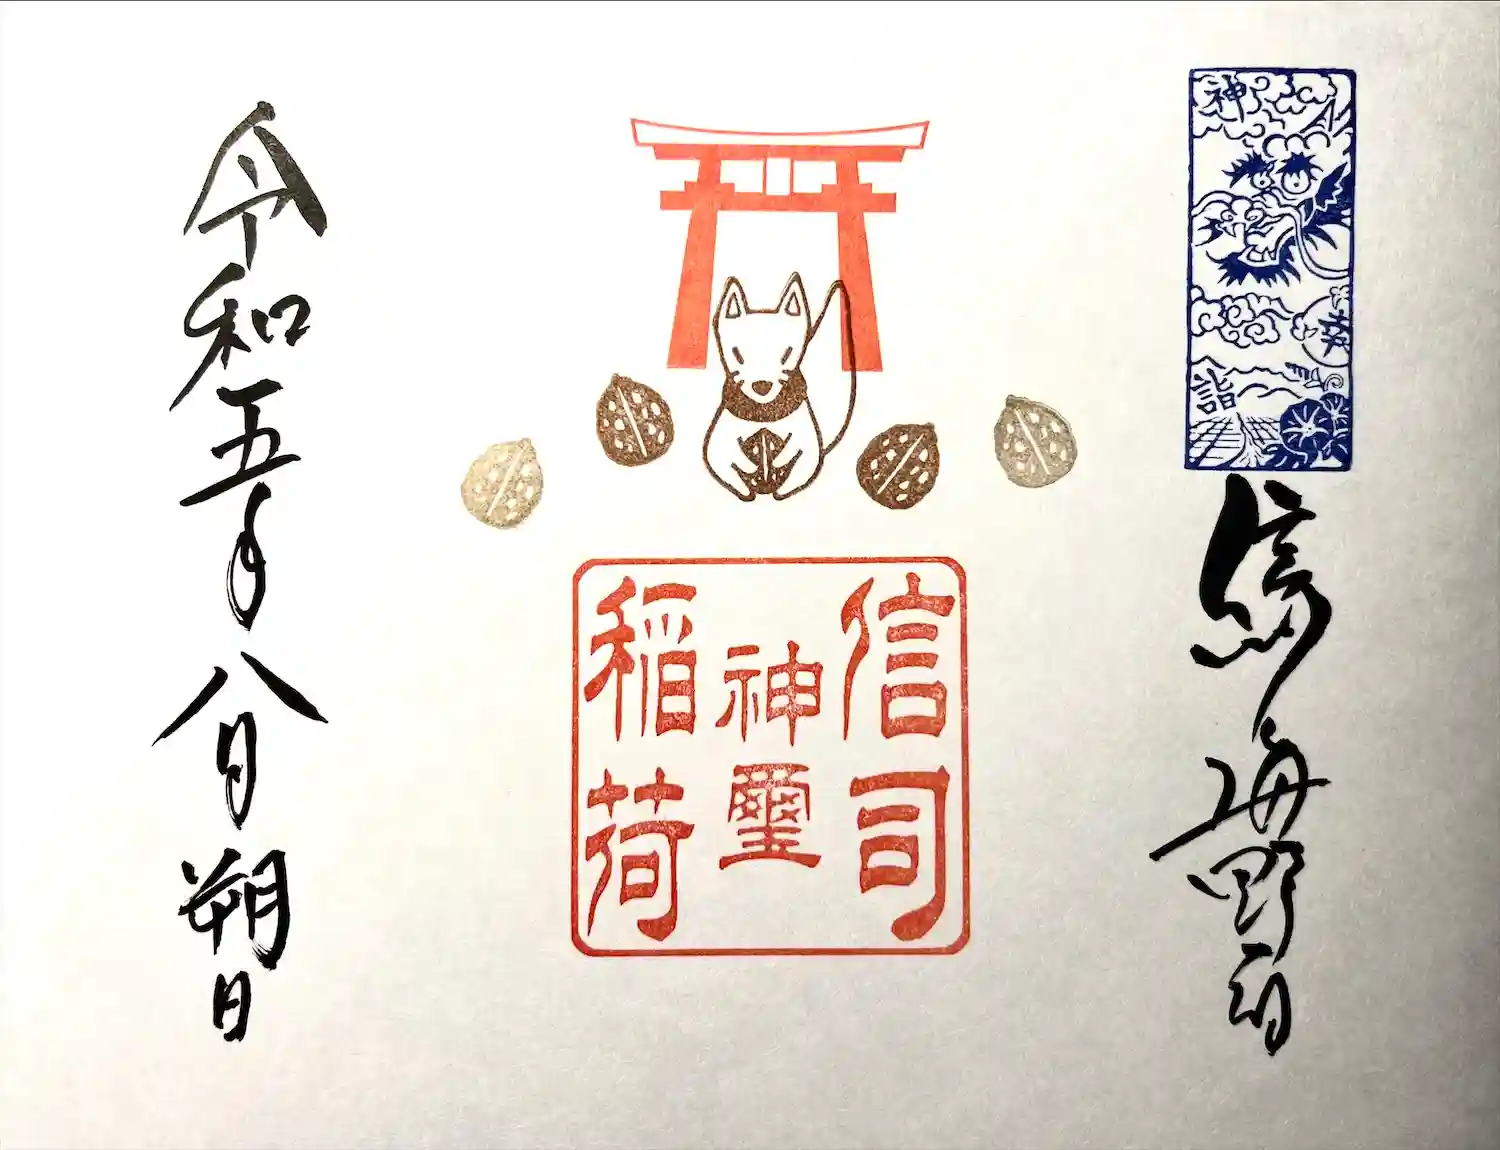 神
幸
詣
信 海野
信司
神璽
稲荷
令和五年八月朔日